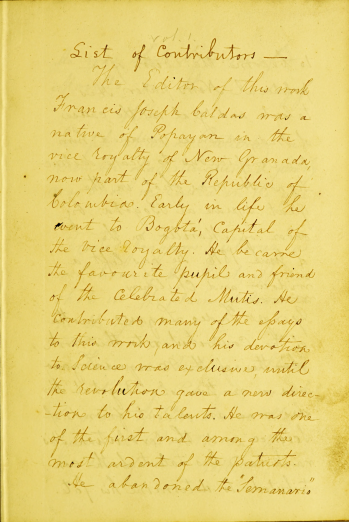 List of Contributors —
The Editor of this work
Francis Joseph Caldas was a
native of Popayan in the
vice royalty of New Granada,
now part of the Republic of
Colombia. Early in life he
went to Bogotá, Capital of
the Vice Royalty. He became
the favourite pupil and friend
of the Celebrated Mutis. He
contributed many of the essays
to this work and his devotion
to Science was exclusive until
the revolution gave a new direc-
-tion to his talents. He was one
of the first and among the
most ardent of the patriots.
He abandoned the "Semanario"